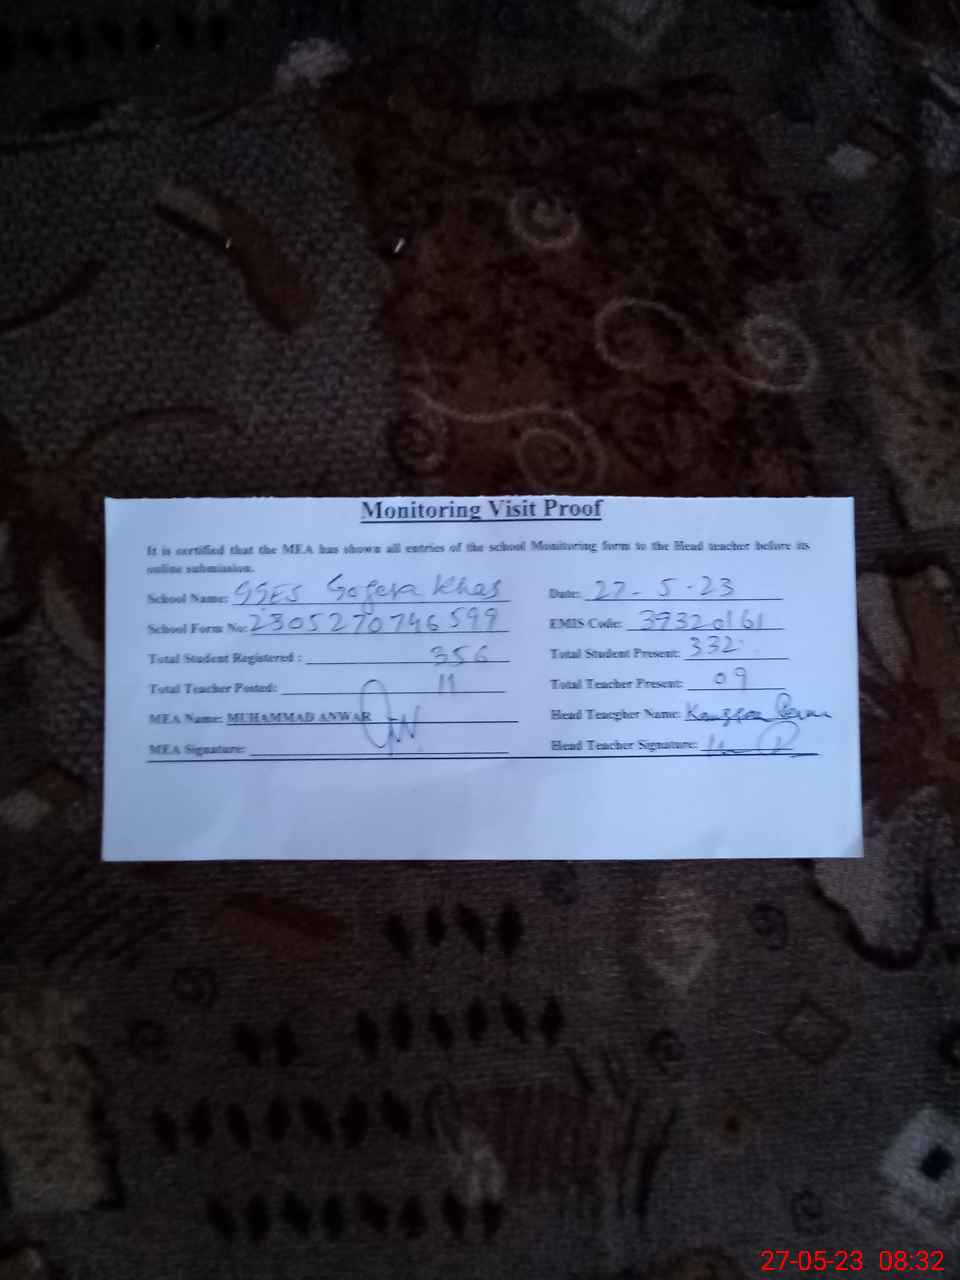 Monitoring Visit Proof
It is certified that the MEA has shown all entries of the school Monitoring form to the Head teacher before its
online submission.
School Name: GGES Gogera Khas Date: 27-5-23
School Form No: 2305270746599 EMIS Code: 39320161
Total Student Registered : 356 Total Student Present: 332
Total Teacher Posted: 11 Total Teacher Present: 09
MEA Name: MUHAMMAD ANWAR Head Teacgher Name:
MEA Signature: Head Teacher Signature:
27-05-23 08:32